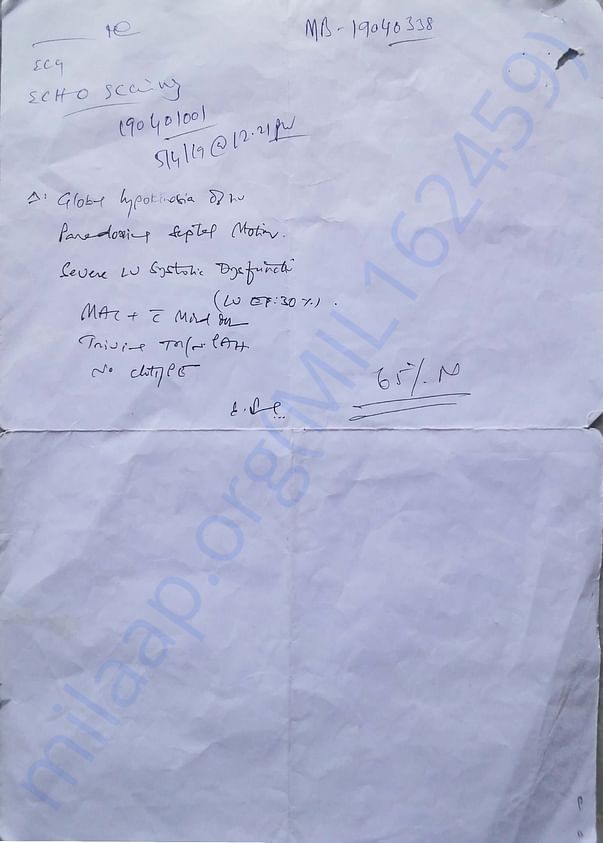 MB-19040338
ECG
ECHO
190401001
5/4/19 @ 12.21 pm
Δ: Global hypokinesia of LV
Paradoxing Septal Motion.
Severe LV Systolic Dysfuncti
(LV EF:30%).
MAC + c̄ Mild
Trivial TR/no PAH
No clot/PE
65%. N
milaap.org(MIL1624459)